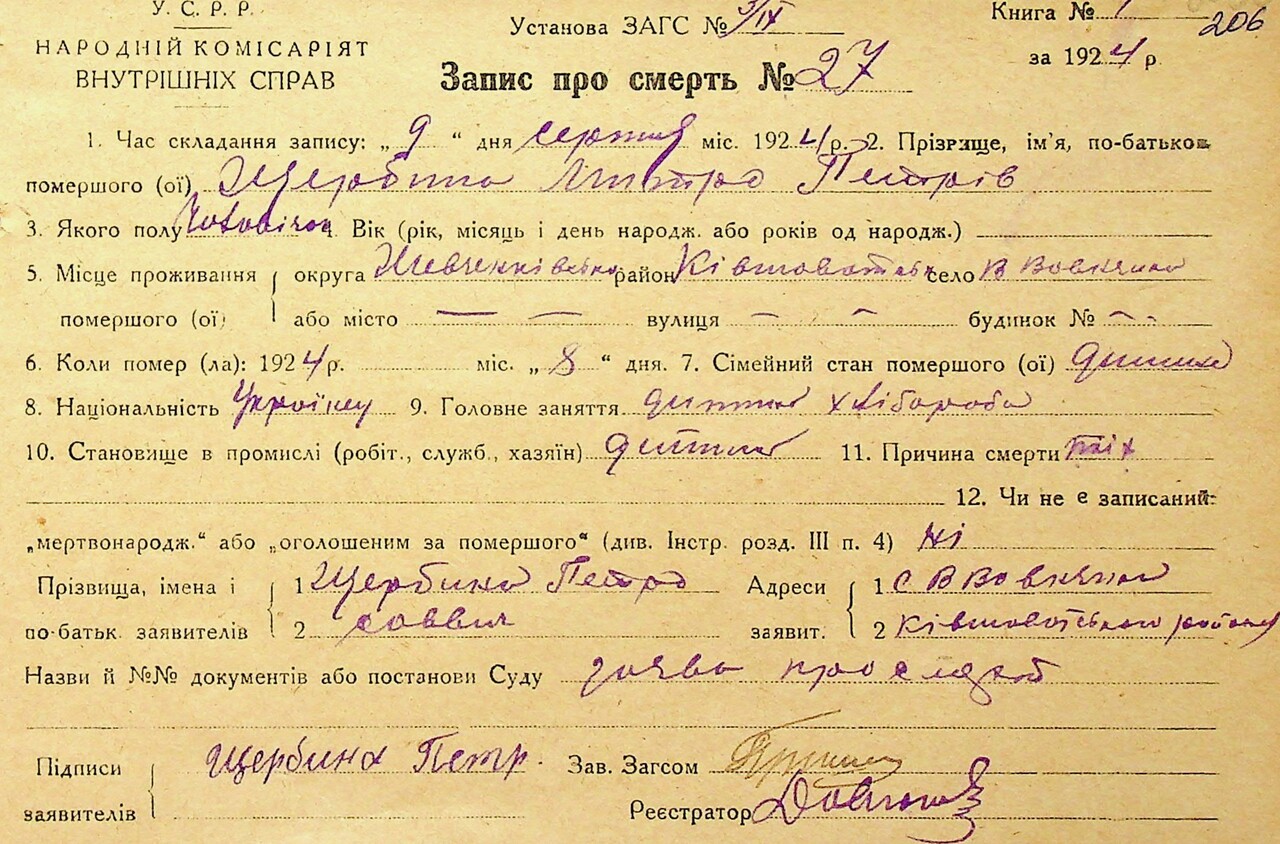 У. С. Р. Р.
НАРОДНІЙ КОМІСАРІЯТ
ВНУТРІШНІХ СПРАВ
Установа ЗАГС № 3/ІХ
Книга № 1 206
за 1924 р
Запис про смерть № 27
1. Час складання запису: „ 9 “ дня серпня міс. 1924 р. 2. Прізвище, ім'я, по-батькові
помершого (ої) Щербина Митро Петрів
3. Якого полу 4. Вік (рік, місяць і день народж. або років од народж.)
5. Місце проживання помершого (ої) округа Шевченківська район Ківшоватськ село В Вовнянка
або місто — — вулиця — — будинок № — -
6. Коли помер (ла): 1924 р. міс. „ 8 “ дня. 7. Сімейний стан помершого (ої) дитина
8. Національність Українец 9. Головне заняття дитина хлібороба
10. Становище в промислі (робіт., служб., хазяїн) дитина 11. Причина смерти
12. Чи не є записаний:
„мертвонародж.“ або „оголошеним за помершого“ (див. Інстр. розд. III п. 4) Ні
Прізвища, імена і по-батьк. заявителів 1 Щербина Петро
2 Саввич
Адреси заявит. 1 С В Вовнянка
2 Ківшоватського району
Назви й №№ документів або постанови Суду заява
Підписи заявителів Щербина Петр.
Зав. Загсом
Реєстратор